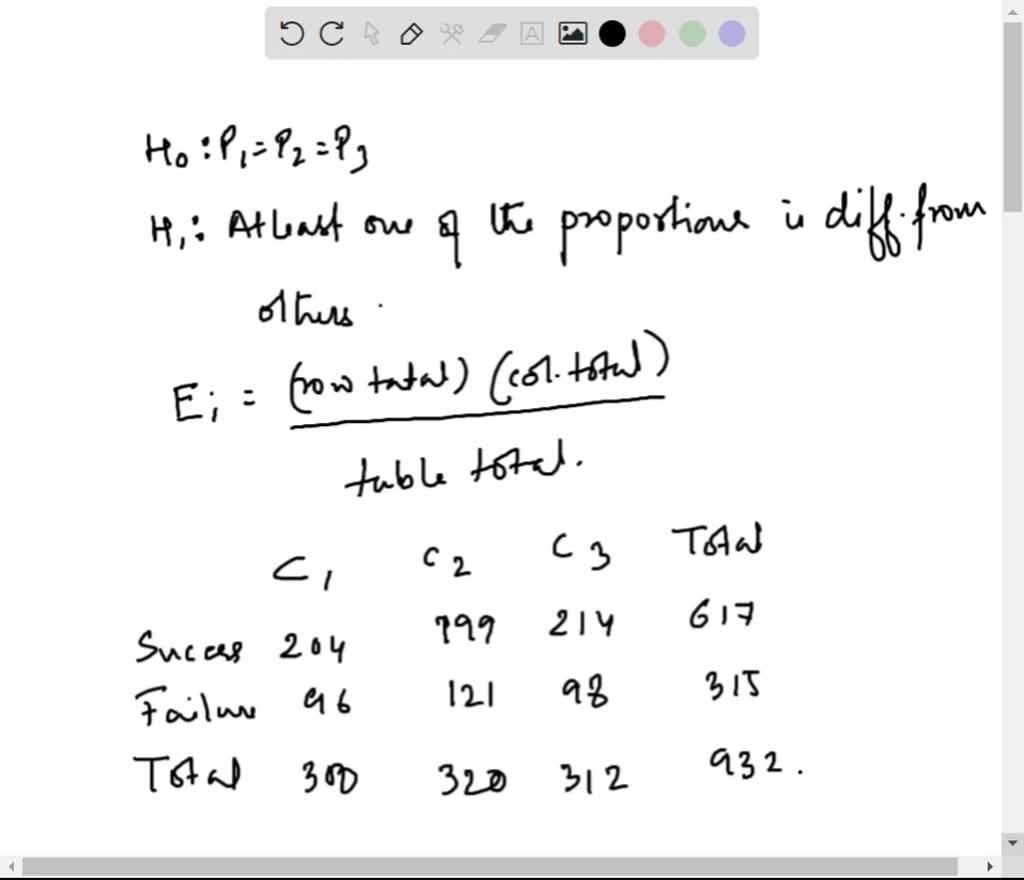 H₀ : P₁ = P₂ = P₃
H₁ : Atleast one of the proportions is diff. from
others.
Eᵢ = (row total) (col. total)
table total.
C₁ C₂ C₃ Total
Success 204 199 214 617
Failure 96 121 98 315
Total 300 320 312 932.